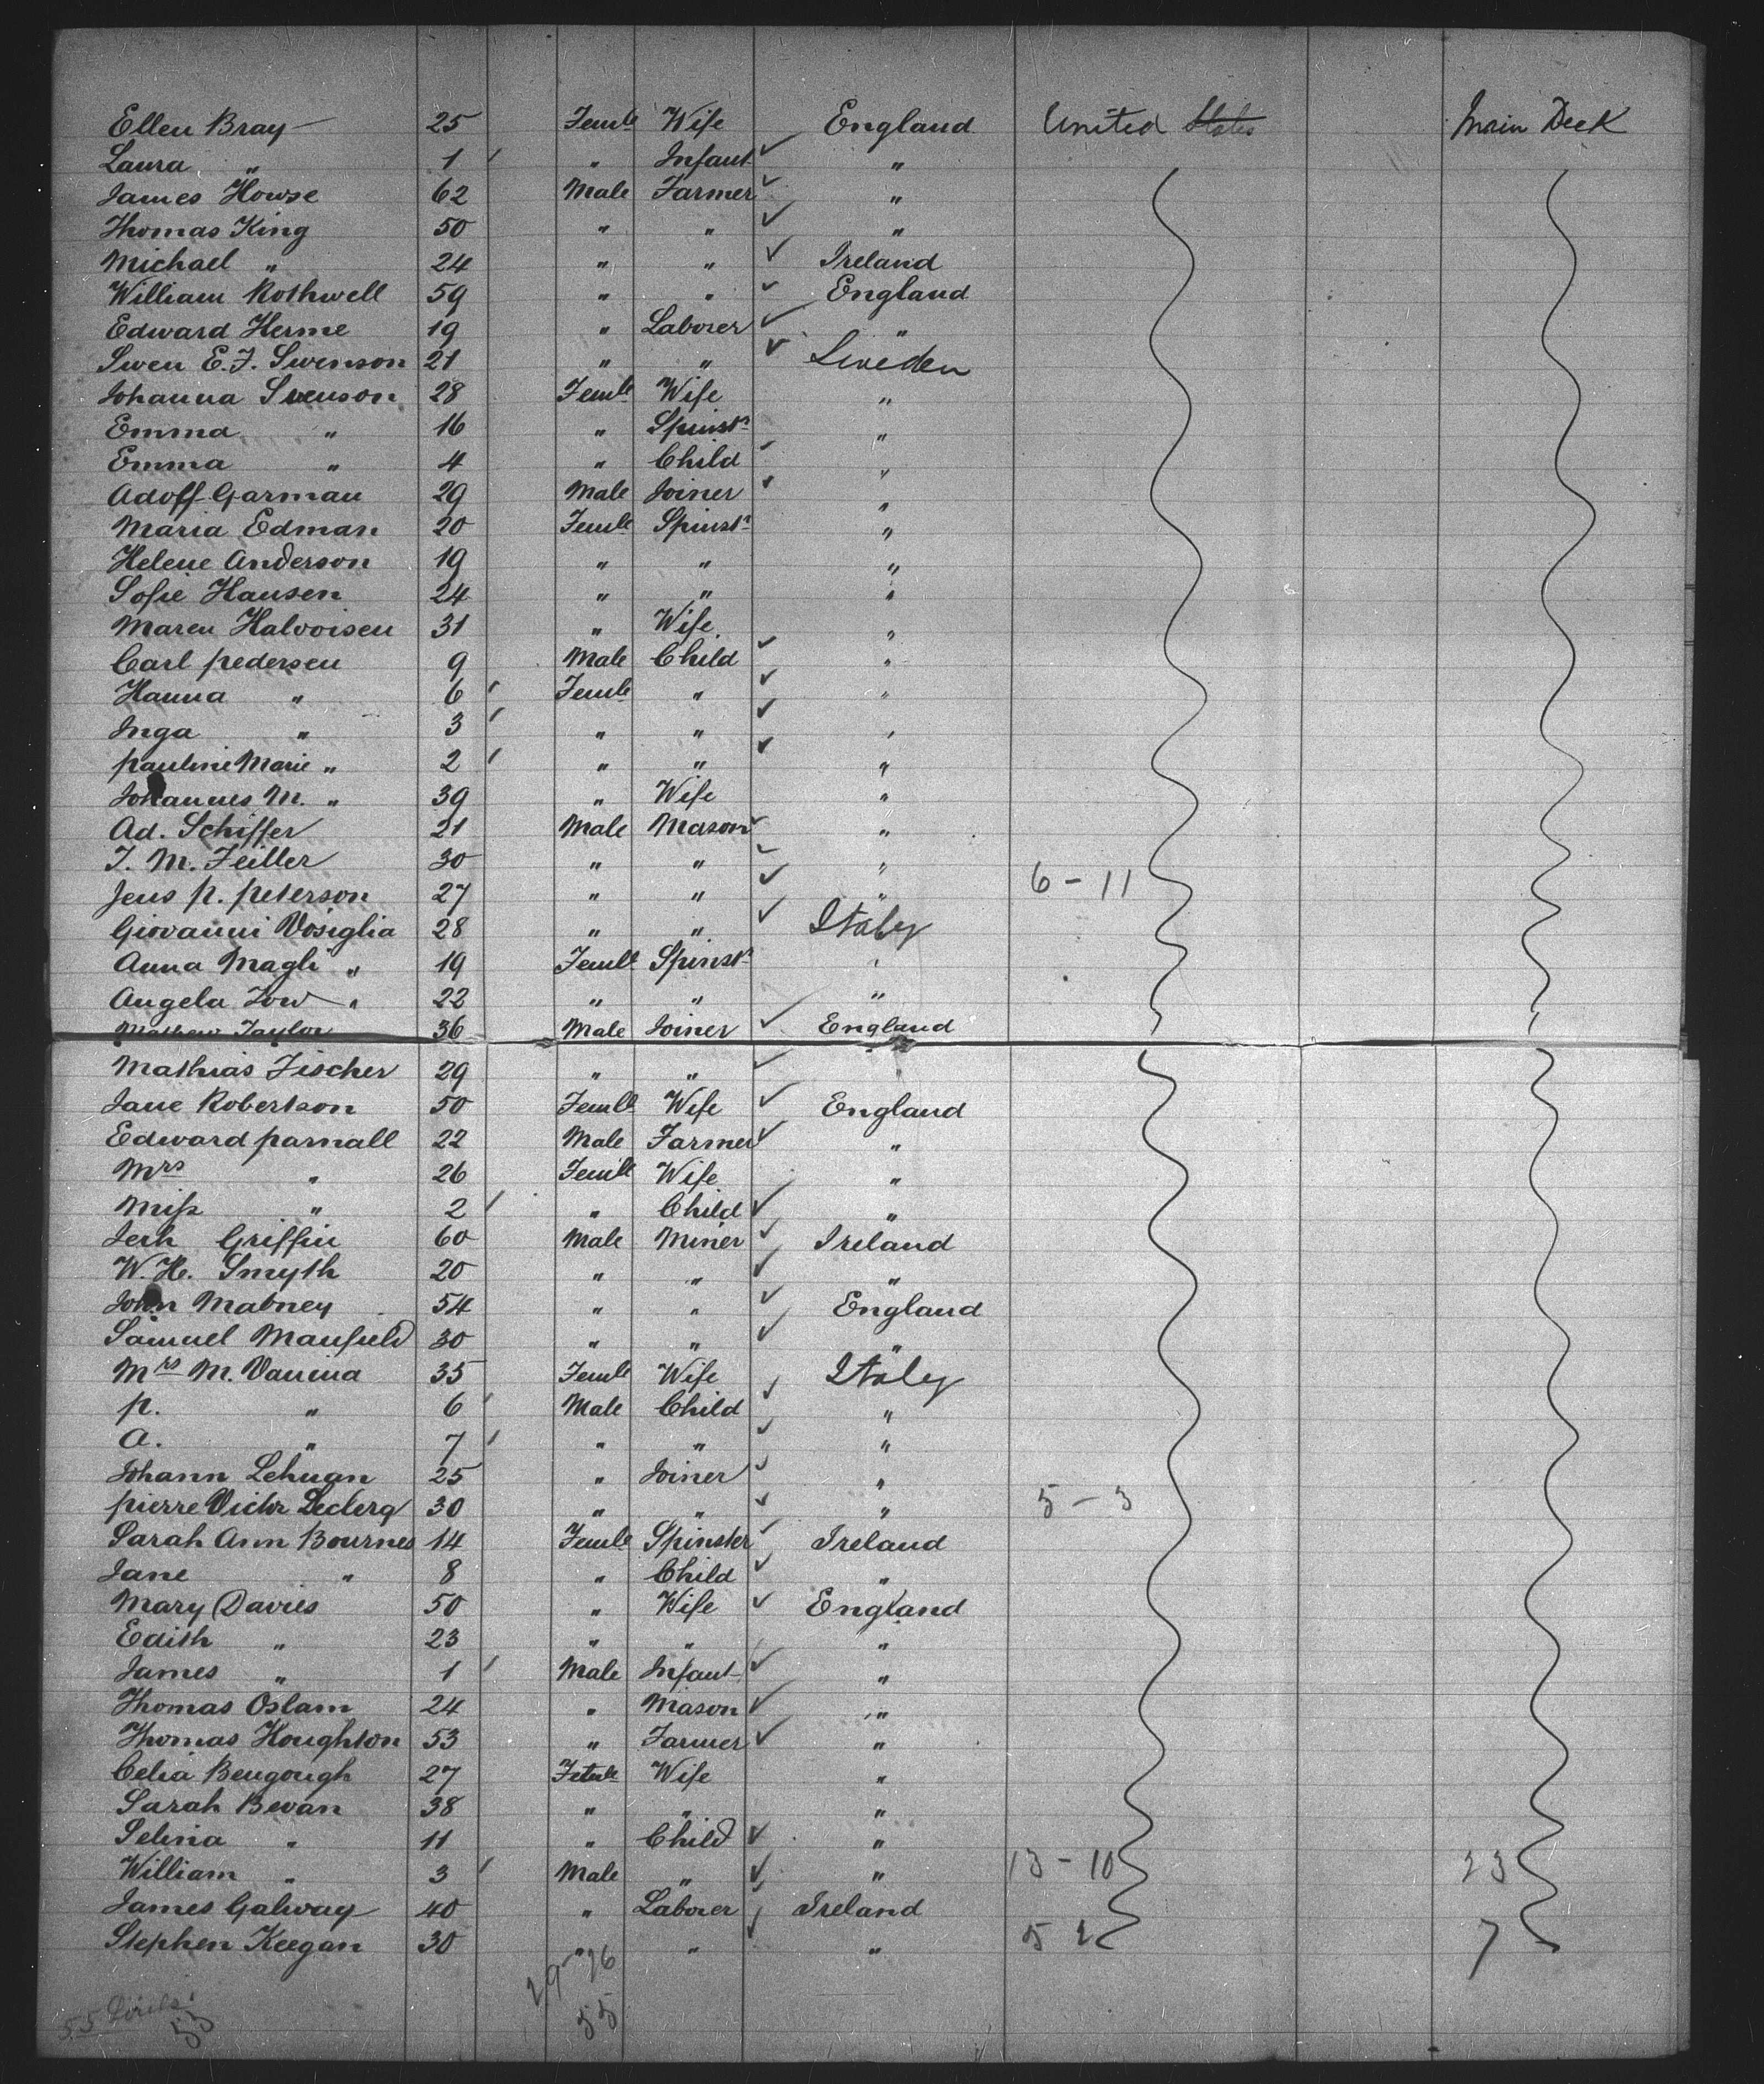 Ellen Bray 25 Femle Wife England United States Main Deck
Laura " 1 " Infant "
James Howse 62 Male Farmer "
Thomas King 50 " " "
Michael " 24 " " Ireland
William Rothwell 59 " " England
Edward Herme 19 " Laborer "
Swen E. J. Swenson 21 " " Sweden
Johanna Svenson 28 Femle Wife "
Emma " 16 " Spinstr "
Emma " 4 " Child "
Adoff Garman 29 Male Joiner "
Maria Edman 20 Femle Spinstr "
Helene Anderson 19 " " "
Sofie Hansen 24 " " "
Maren Halvoisen 31 " Wife "
Carl pedersen 9 Male Child "
Hanna " 6 Femle " "
Inga " 3 " " "
pauline Marie " 2 " " "
Johannes M. " 39 " Wife "
Ad. Schiffer 21 Male Mason "
J. M. Feiller 30 " " "
Jens p. peterson 27 " " " 6 - 11
Giovanni Vosiglia 28 " " Italy
Anna Magli " 19 Femle Spinstr "
Angela Tow " 22 " " "
Mathew Taylor 36 Male Joiner England
Mathias Fischer 29 " " "
Jane Robertson 50 Femle Wife England
Edward parnall 22 Male Farmer "
Mrs " 26 Femle Wife "
Miss " 2 " Child "
Jerh Griffin 60 Male Miner Ireland
W. H. Smyth 20 " " "
John Mabney 54 " " England
Samuel Manfield 30 " " "
Mrs M. Vanina 35 Femle Wife Italy
p. " 6 Male Child "
A. " 7 " " "
Johann Lehman 25 " Joiner "
pierre Victr Leclerq 30 " " " 5 - 3
Sarah Ann Bournes 14 Femle Spinster Ireland
Jane " 8 " Child "
Mary Davies 50 " Wife England
Edith " 23 " " "
James " 1 Male Infant "
Thomas Oslam 24 " Mason "
Thomas Houghton 53 " Farmer "
Celia Bengough 27 Femle Wife "
Sarah Bevan 38 " " "
Selina " 11 " Child "
William " 3 Male " " 13 - 10 23
James Galway 40 " Laborer Ireland
Stephen Keegan 30 " " " 5 2 7
29 - 26
55
55
53